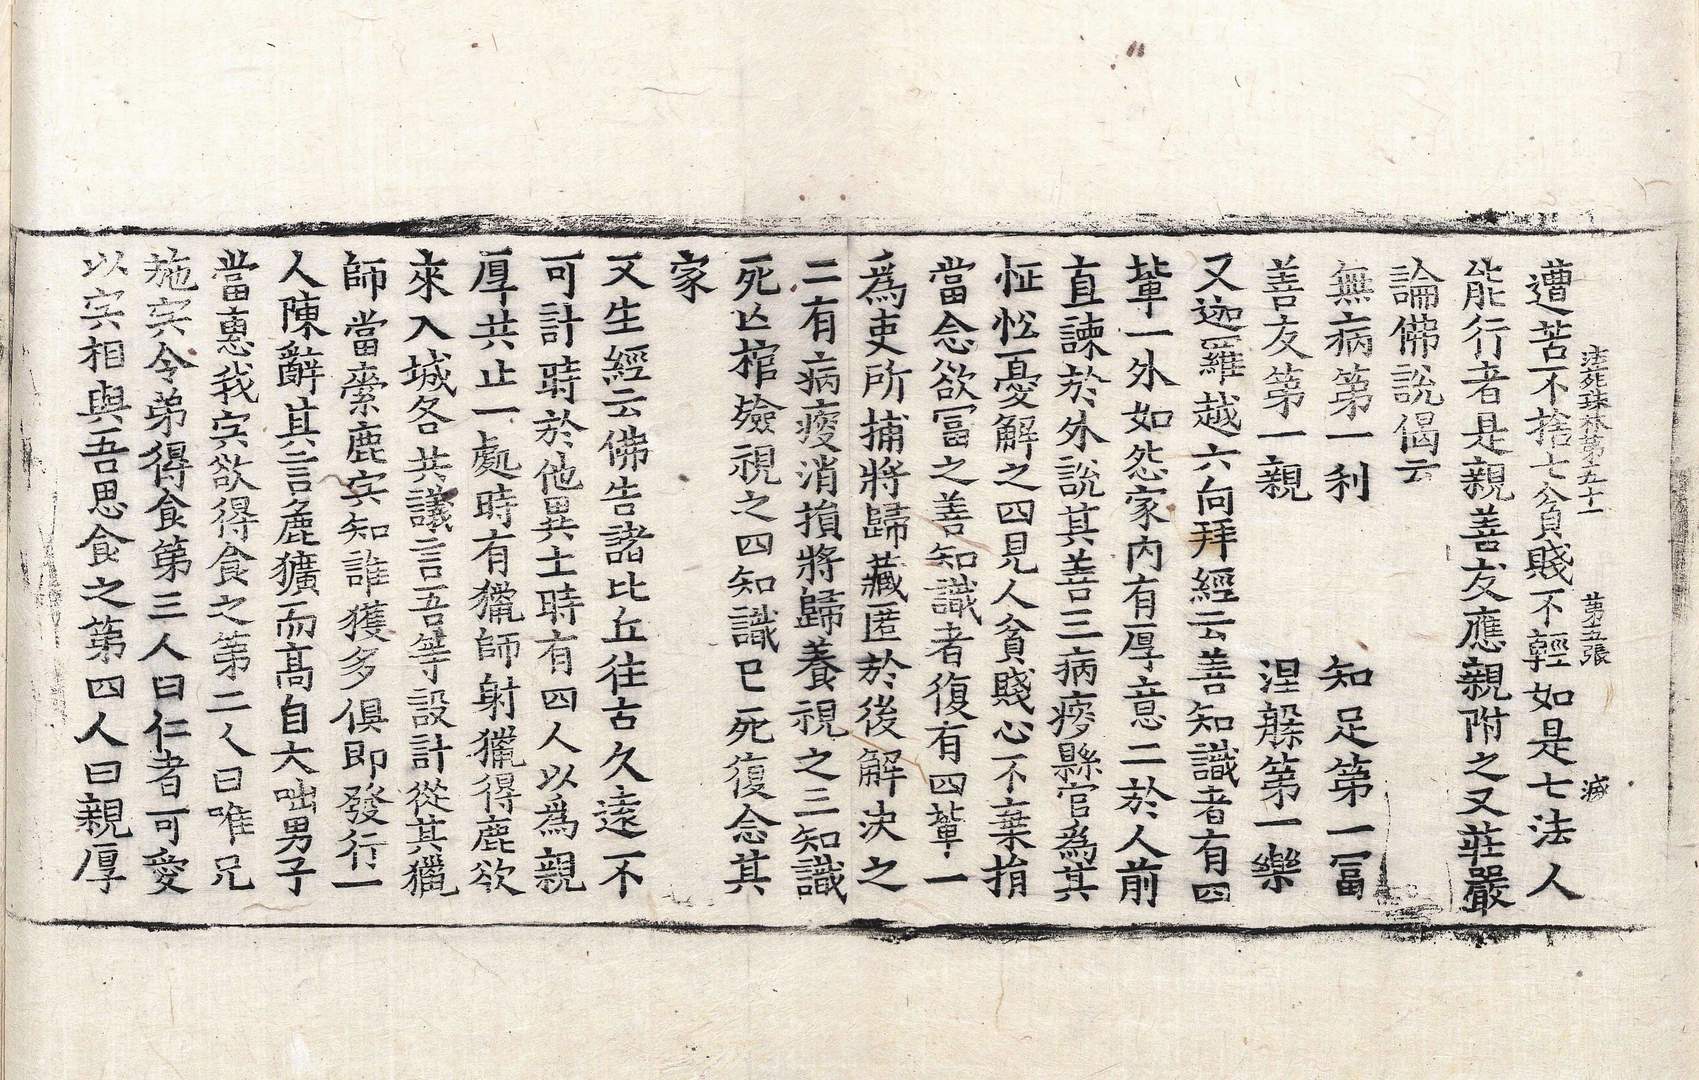 法苑珠林第五十一 第五張 㓕
遭苦不捨七貧賤不輕如是七法人
能行者是親善友應親附之又莊嚴
論佛說偈云
無病第一利 知足第一冨
善友第一親 涅槃第一樂
又迦羅越六向拜經云善知識者有四
輩一外如怨家內有厚意二於人前
直諫於外說其善三病瘦縣官爲其
怔忪憂解之四見人貧賤心不棄捐
當念欲冨之善知識者復有四輩一
爲吏所捕將歸藏匿於後解決之
二有病瘦消損將歸養視之三知識
死亡棺殮視之四知識已死復念其
家
又生經云佛告諸比丘往古久遠不
可計時於他異土時有四人以爲親
厚共止一處時有獵師射獵得鹿欲
來入城各共議言吾等設計從其獵
師當索鹿宍知誰獲多俱即發行一
人陳辭其言麁獷而髙自大咄男子
當惠我宍欲得食之第二人曰唯兄
施宍令弟得食第三人曰仁者可愛
以宍相與吾思食之第四人曰親厚